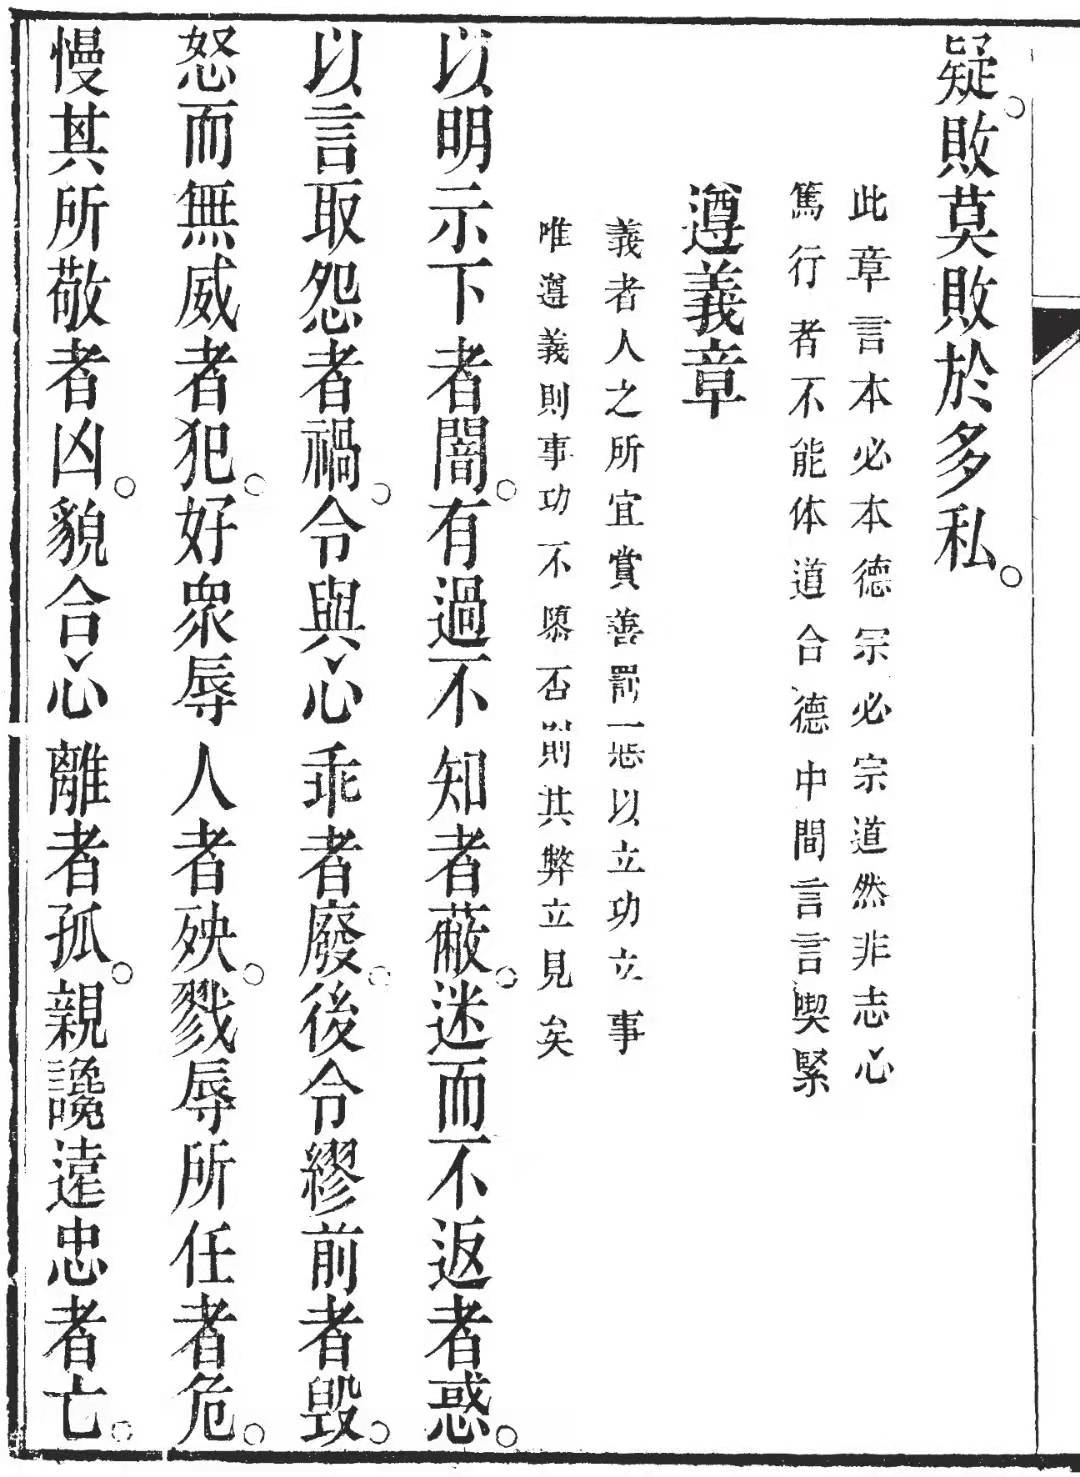 疑。敗莫敗於多私。
此章言本必本德宗必宗道然非志心
篤行者不能体道合德中間言言喫緊
遵義章
義者人之所宜賞善罰惡以立功立事
唯遵義則事功不隳否則其弊立見矣
以明示下者闇。有過不知者蔽。迷而不返者惑。
以言取怨者禍。令與心乖者廢。後令繆前者毀。
怒而無威者犯。好衆辱人者殃。戮辱所任者危。
慢其所敬者凶。貌合心離者孤。親讒遠忠者亡。